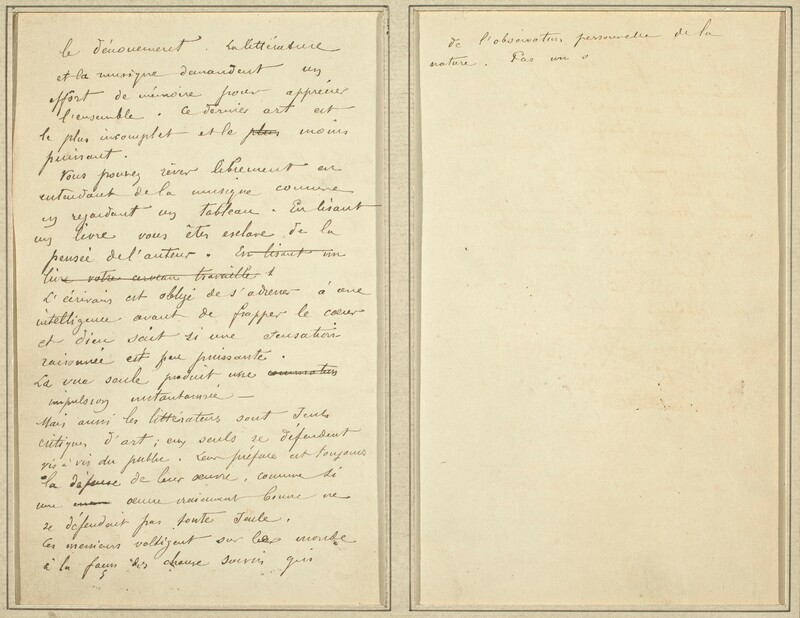 le dénouement. La littérature
et la musique demandent un
effort de mémoire pour apprécier
l'ensemble. Ce dernier art est
le plus incomplet et le plus moins
puissant.
Vous pouvez rêver librement en
entendant de la musique comme
en regardant un tableau. En lisant
un livre vous êtes esclave de la
pensée de l'auteur. En lisant un
livre votre cerveau travaille
L'écrivain est obligé de s'adresser à une
intelligence avant de frapper le cœur
et Dieu sait si une sensation
raisonnée est peu puissante.
La vue seule produit une commotion
impulsion instantanée —
Mais aussi les littérateurs sont seuls
critiques d'art; eux seuls se défendent
vis à vis du public. Leur préface est toujours
la défense de leur œuvre, comme si
une œuvre vraiment bonne ne
se défendait pas toute seule.
Ces messieurs voltigent sur le monde
à la façon des chauve souris qui
de l'observation personnelle de la
nature. Pas un